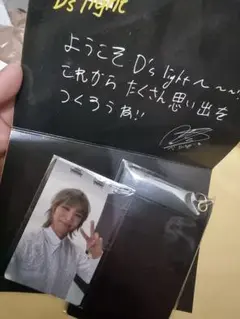 D's light
ようこそ D's light へ〜〜!
これから たくさん思い出を
つくろうね!!